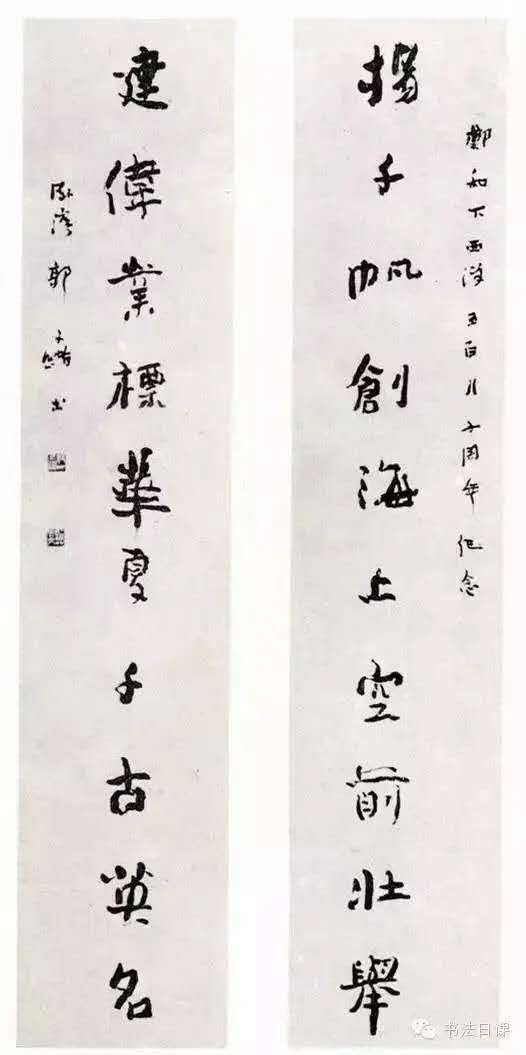 鄭和下西洋五百八十周年纪念
揚千帆創海上空前壯舉
建偉業標華夏千古英名
郭子绪书
书法日课